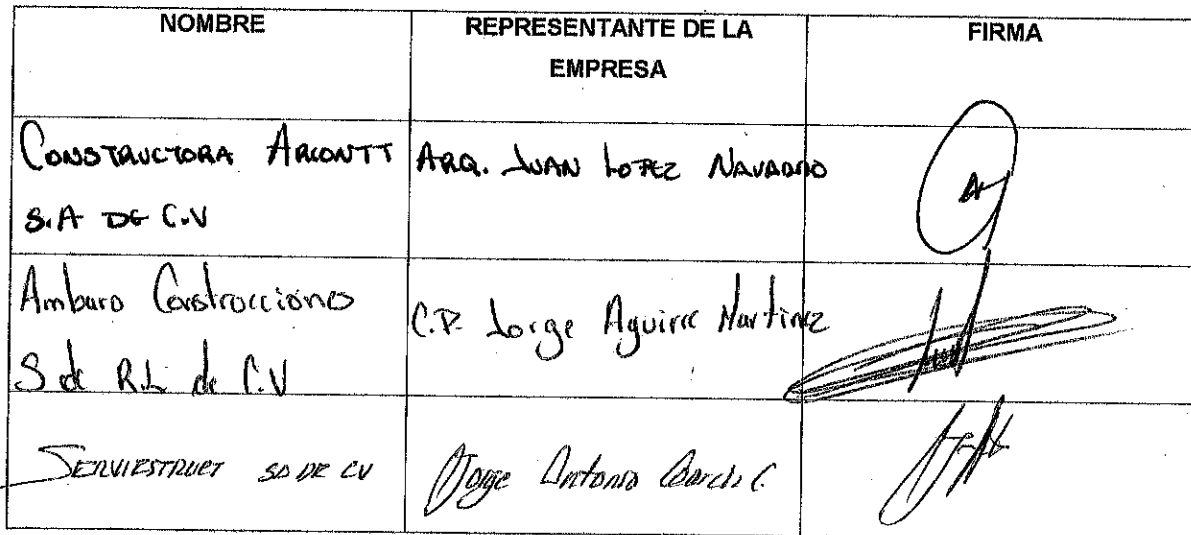 NOMBRE
REPRESENTANTE DE LA
EMPRESA
FIRMA
CONSTRUCTORA ARCONTT
S.A DE C.V
ARQ. JUAN LOPEZ NAVARRO
Amburo Construcciones
S de R.L de C.V
C.P. Jorge Aguirre Martinez
SERVIESTRUCT SA DE CV
Jorge Antonio García C.